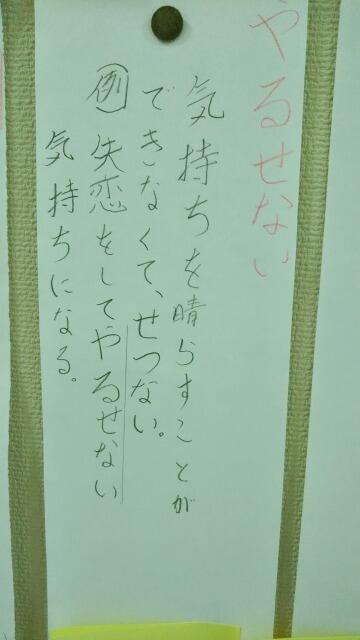 やるせない
気持ちを晴らすことが
できなくて、せつない。
例 失恋をしてやるせない
気持ちになる。